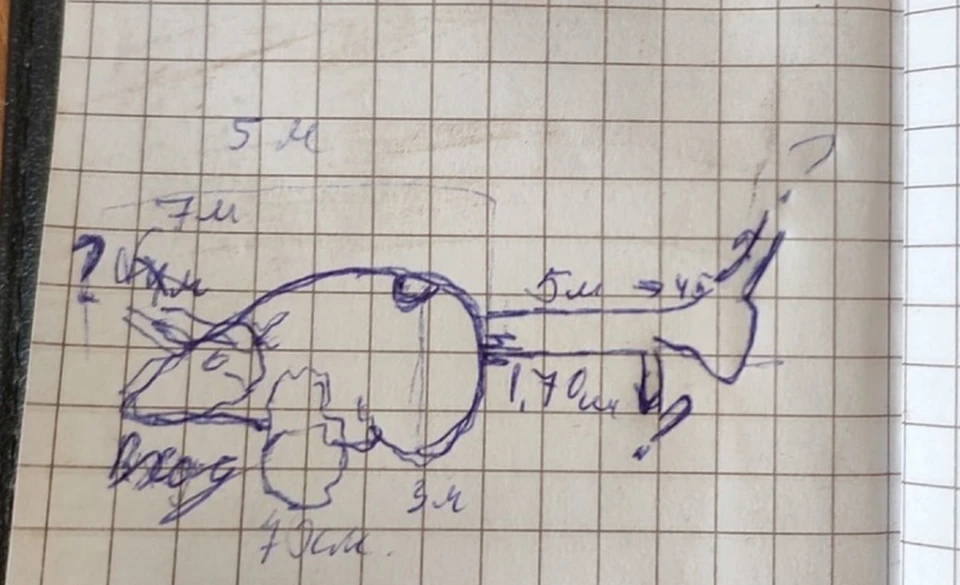 5 м
7м
?
?
5м → 45
1,70м
?
Вход
3м
70см.